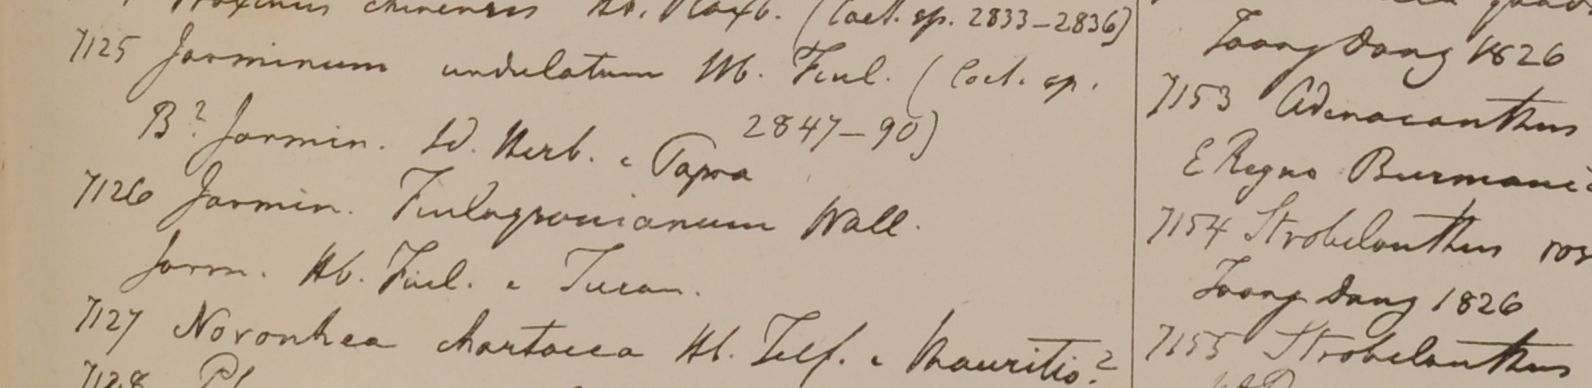 Fraxinus chinensis Hb. Roxb. (Coct. sp. 2833–2836)
7125 Jasminum undulatum Hb. Finl. (Coct. sp.
2847–90)
B? Jasmin. Id. Herb. e Tapoa
7126 Jasmin. Finlaysonianum Wall.
Jasm. Hb. Finl. e Turan.
7127 Noronhea chartacea Hb. Telf. e Mauritio?
7128
Toong Dong 1826
7153 Adenacanthus
E Regno Burmani
7154 Strobilanthus ros
Toong Dong 1826
7155 Strobilanthus